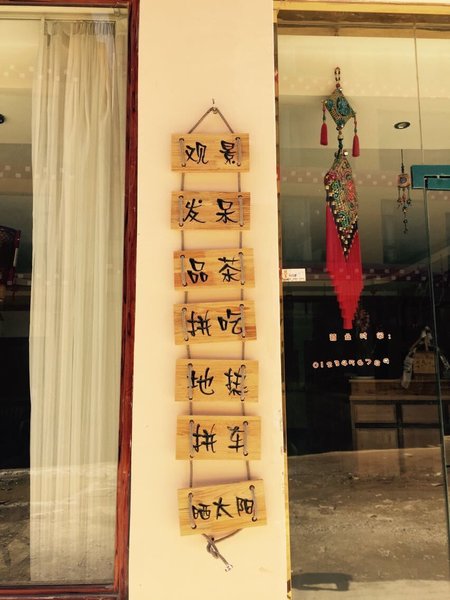 观景
发呆
品茶
拼吃
拼车
晒太阳
0123456789